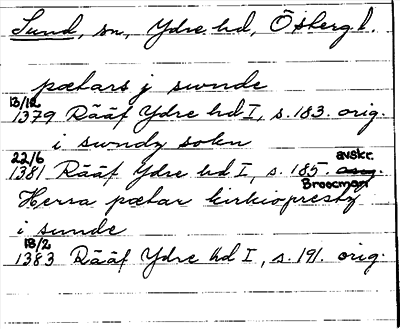 Sund, sn, Ydre hd, Östergl.
pætars j swnde
13/12
1379 Rääf Ydre hd I, s. 183. orig.
i swndz sokn
22/6 avskr.
1381 Rääf Ydre hd I, s. 185. orig.
Broocman
Herra pætar kirkioprestz
i sunde
13/2
1383 Rääf Ydre hd I, s. 191. orig.